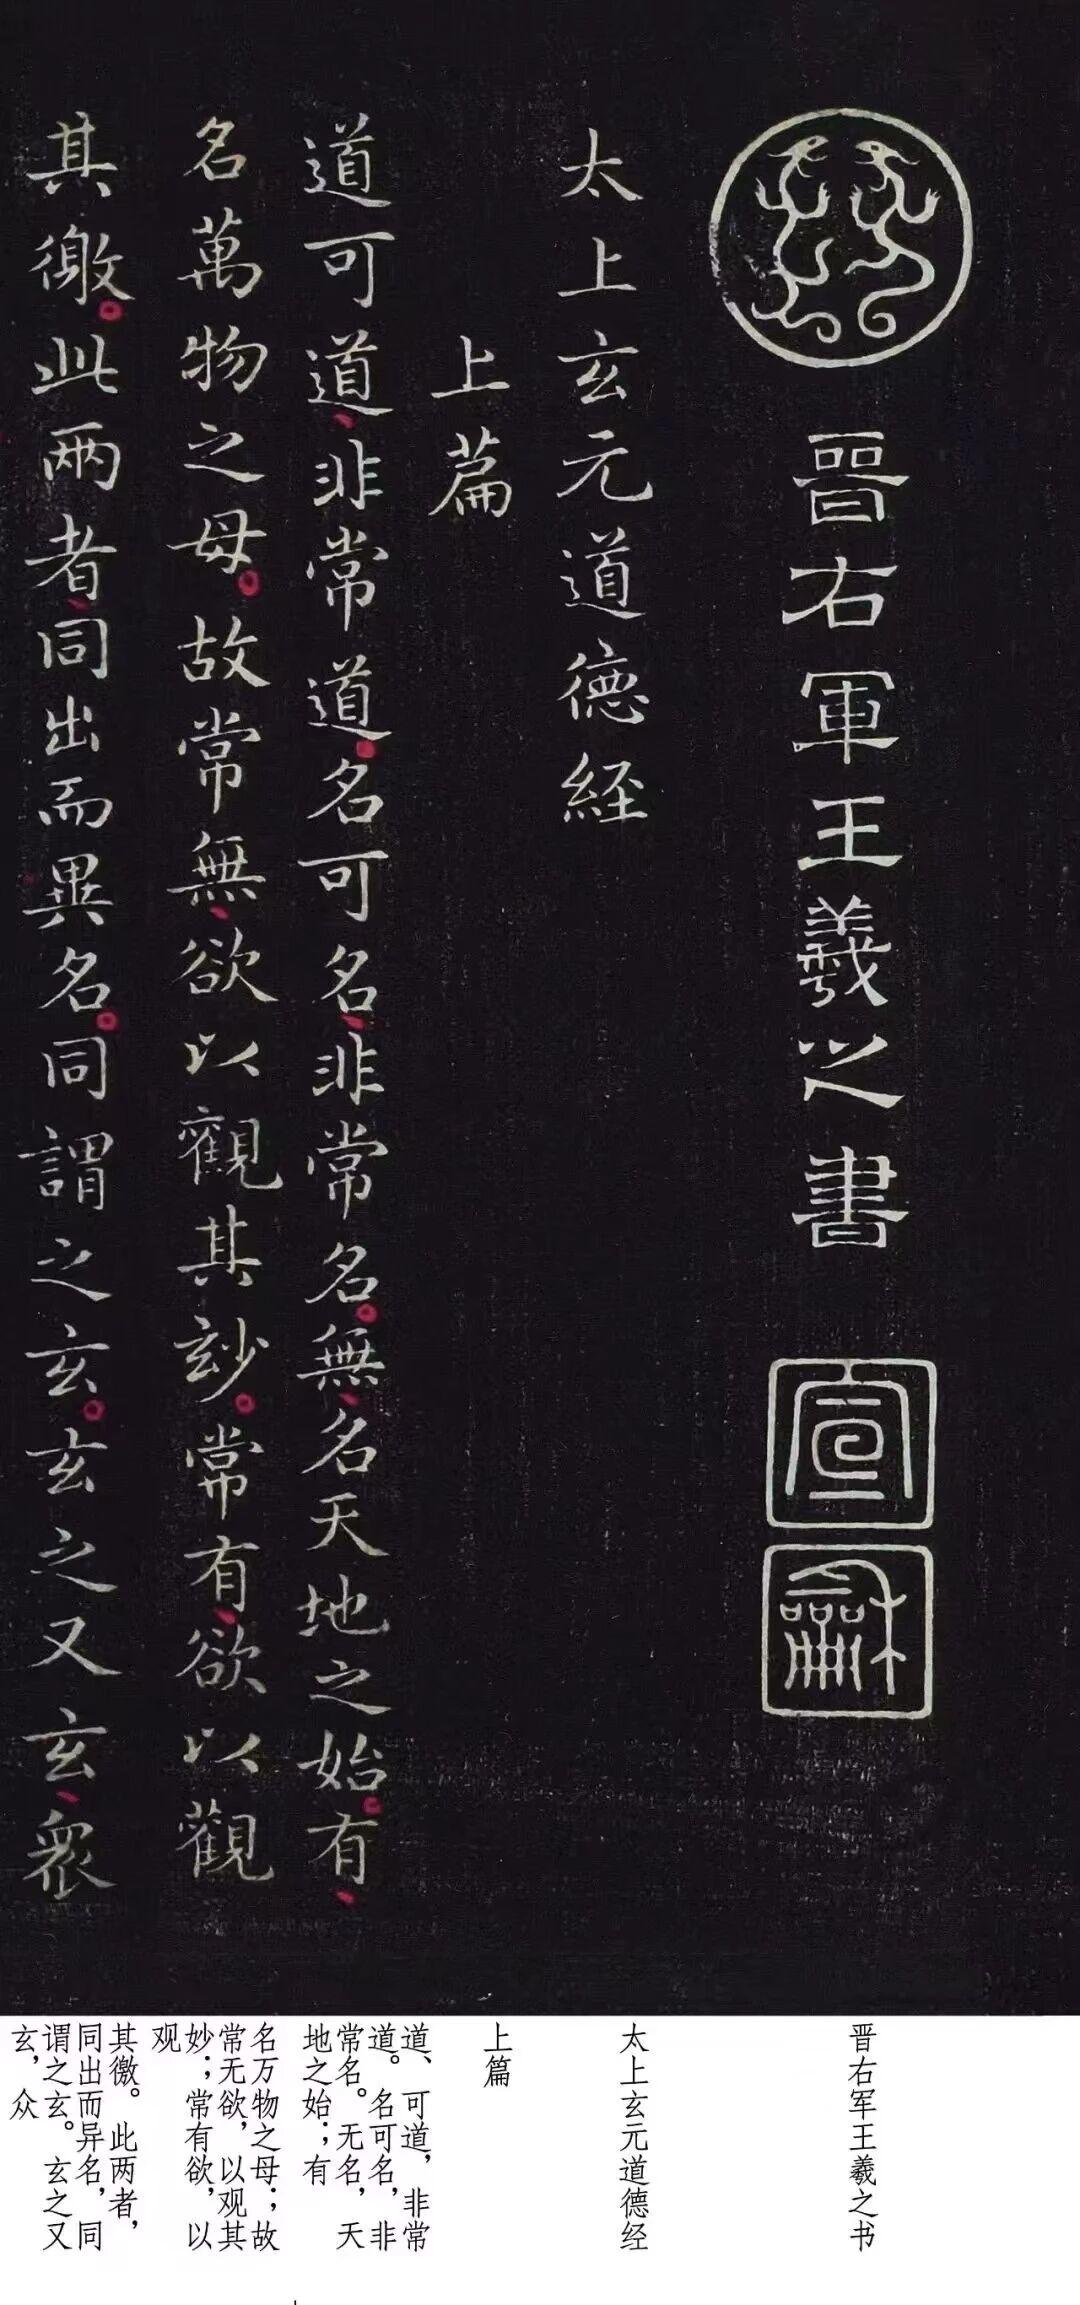 晉右軍王羲之書
宣
龢
太上玄元道德経
上篇
道可道、非常道。名可名、非常名。無、名天地之始。有、
名萬物之母。故常無、欲以觀其玅。常有、欲以觀
其徼。此兩者、同出而異名。同謂之玄。玄之又玄、衆
晋右军王羲之书
太上玄元道德经
上篇
道、可道，非常
道。名可名，非
常名。无名，天
地之始；有
名万物之母；故
常无欲，以观其
妙；常有欲，以
观
其徼。此两者，
同出而异名，同
谓之玄。玄之又
玄，众